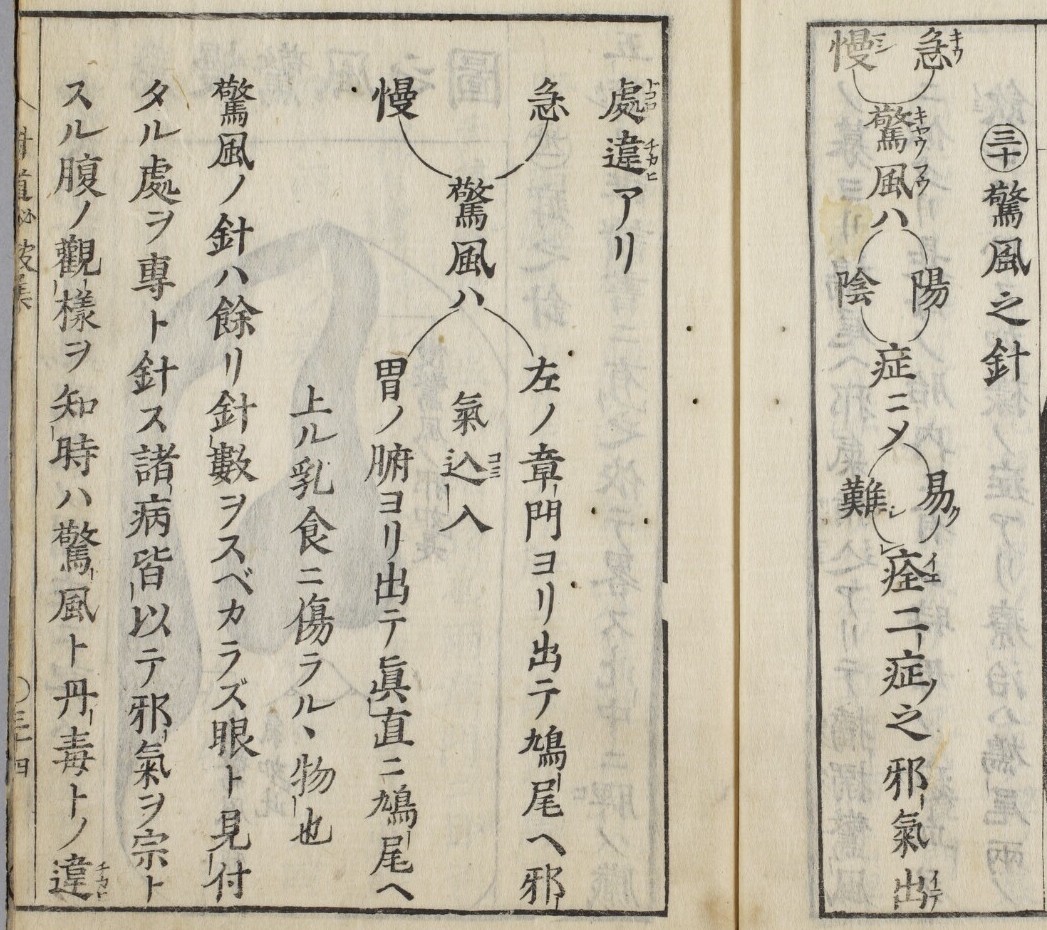 ㊂十驚風之針
急慢驚風ハ陽陰症ニメ易ク難シ痊ユ二症ノ之邪氣出
處違アリ
急慢驚風ハ
左ノ章門ヨリ出テ鳩尾ヘ邪
氣込入
胃ノ腑ヨリ出テ眞直ニ鳩尾ヘ
上ル乳食ニ傷ラルヽ物也
驚風ノ針ハ餘リ針數ヲスベカラズ眼ト見付
タル處ヲ專ト針ス諸病皆以テ邪氣ヲ宗ト
スル腹ノ觀樣ヲ知時ハ驚風ト丹毒トノ違
三十四